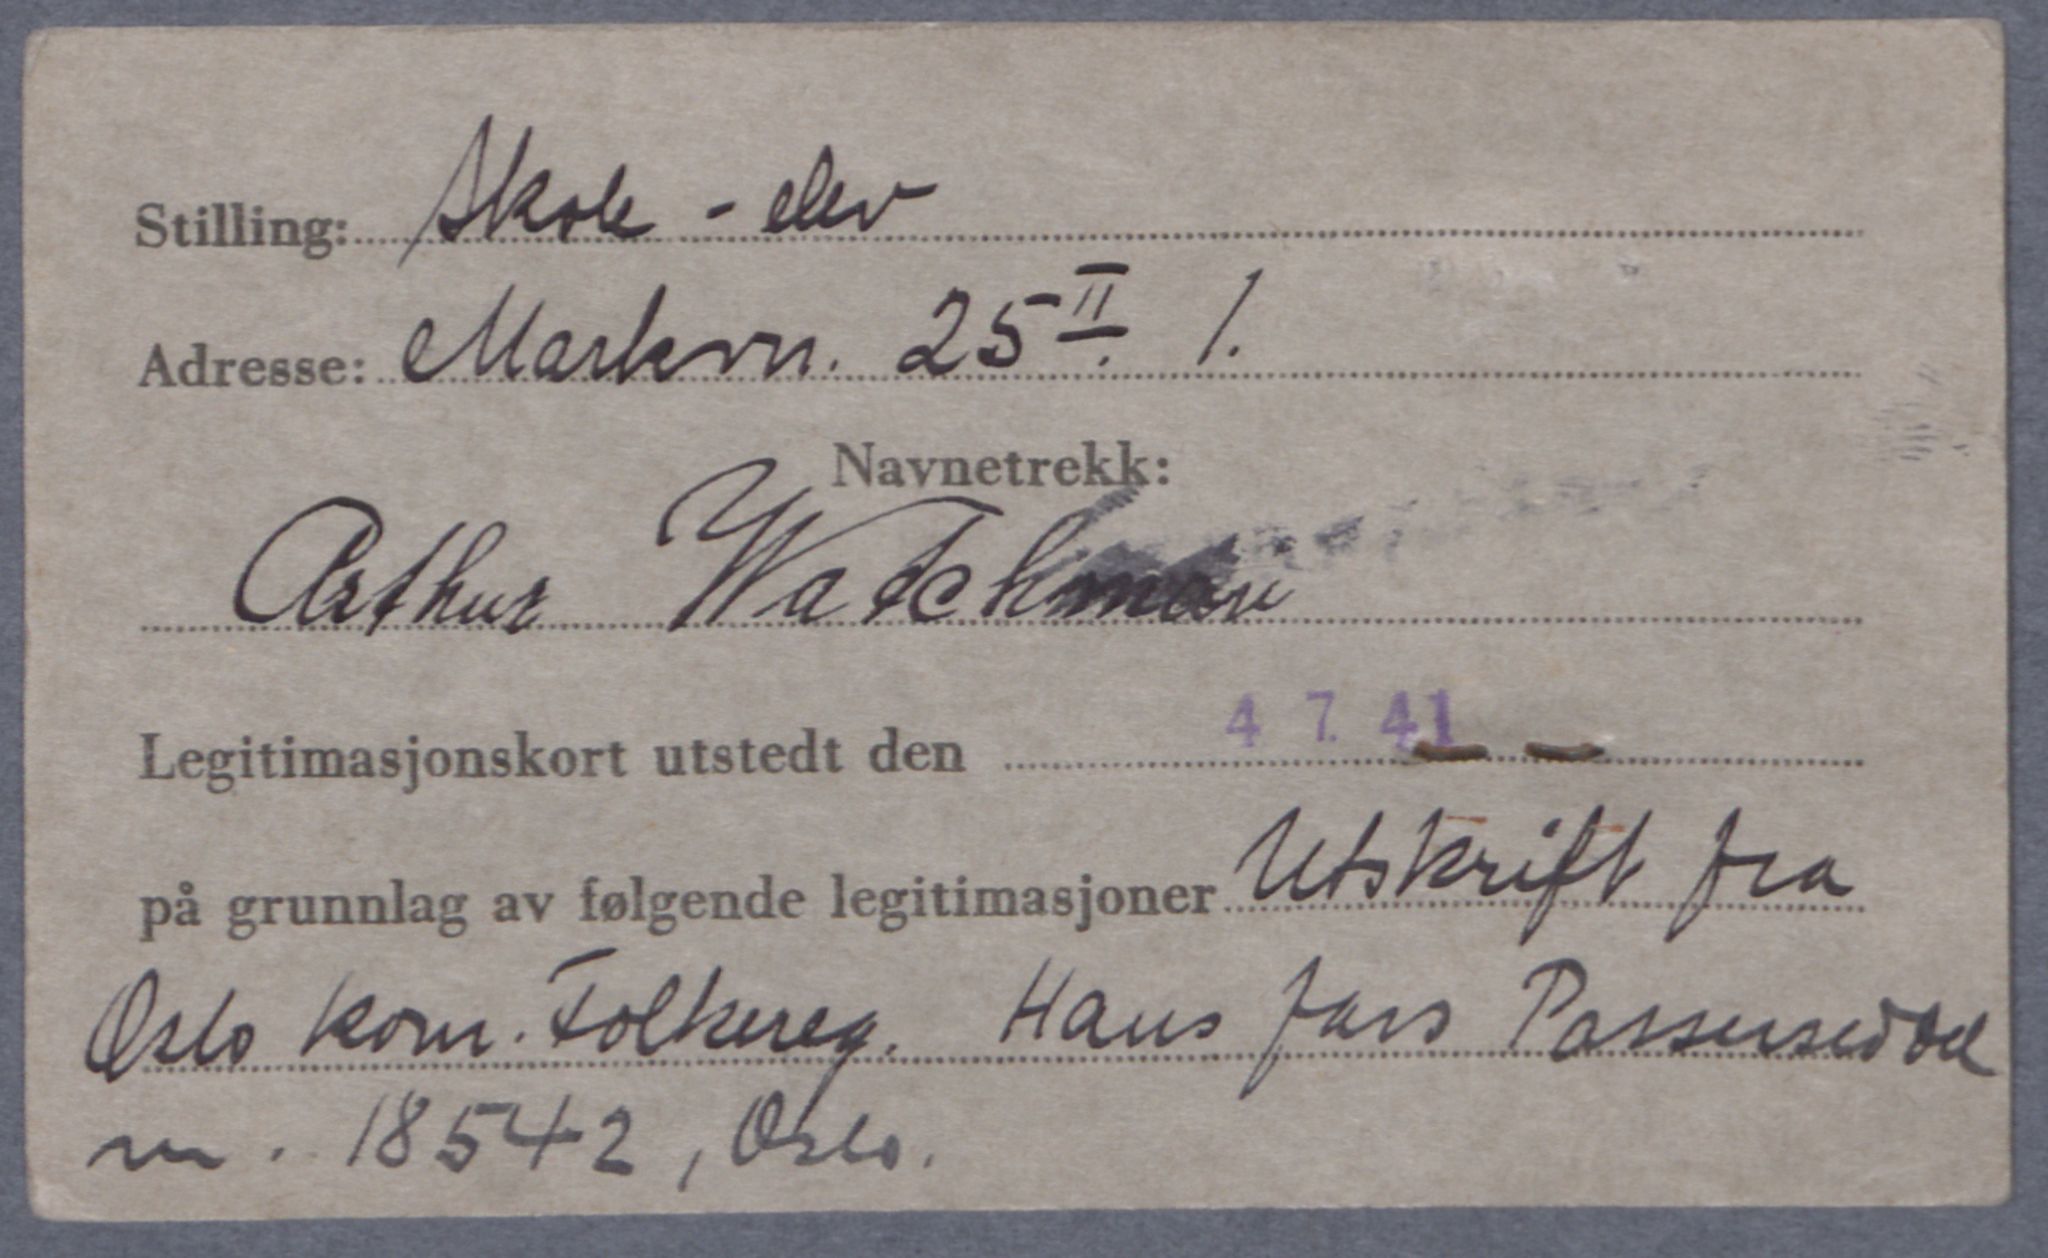 Stilling: Skole-elev
Adresse: Markvn. 25 II. 1.
Navnetrekk:
Arthur Watchman
Legitimasjonskort utstedt den 4 7. 41
på grunnlag av følgende legitimasjoner Utskrift fra
Oslo kom. Folkereg. Hans fars Passerseddel
nr. 18542, Oslo.